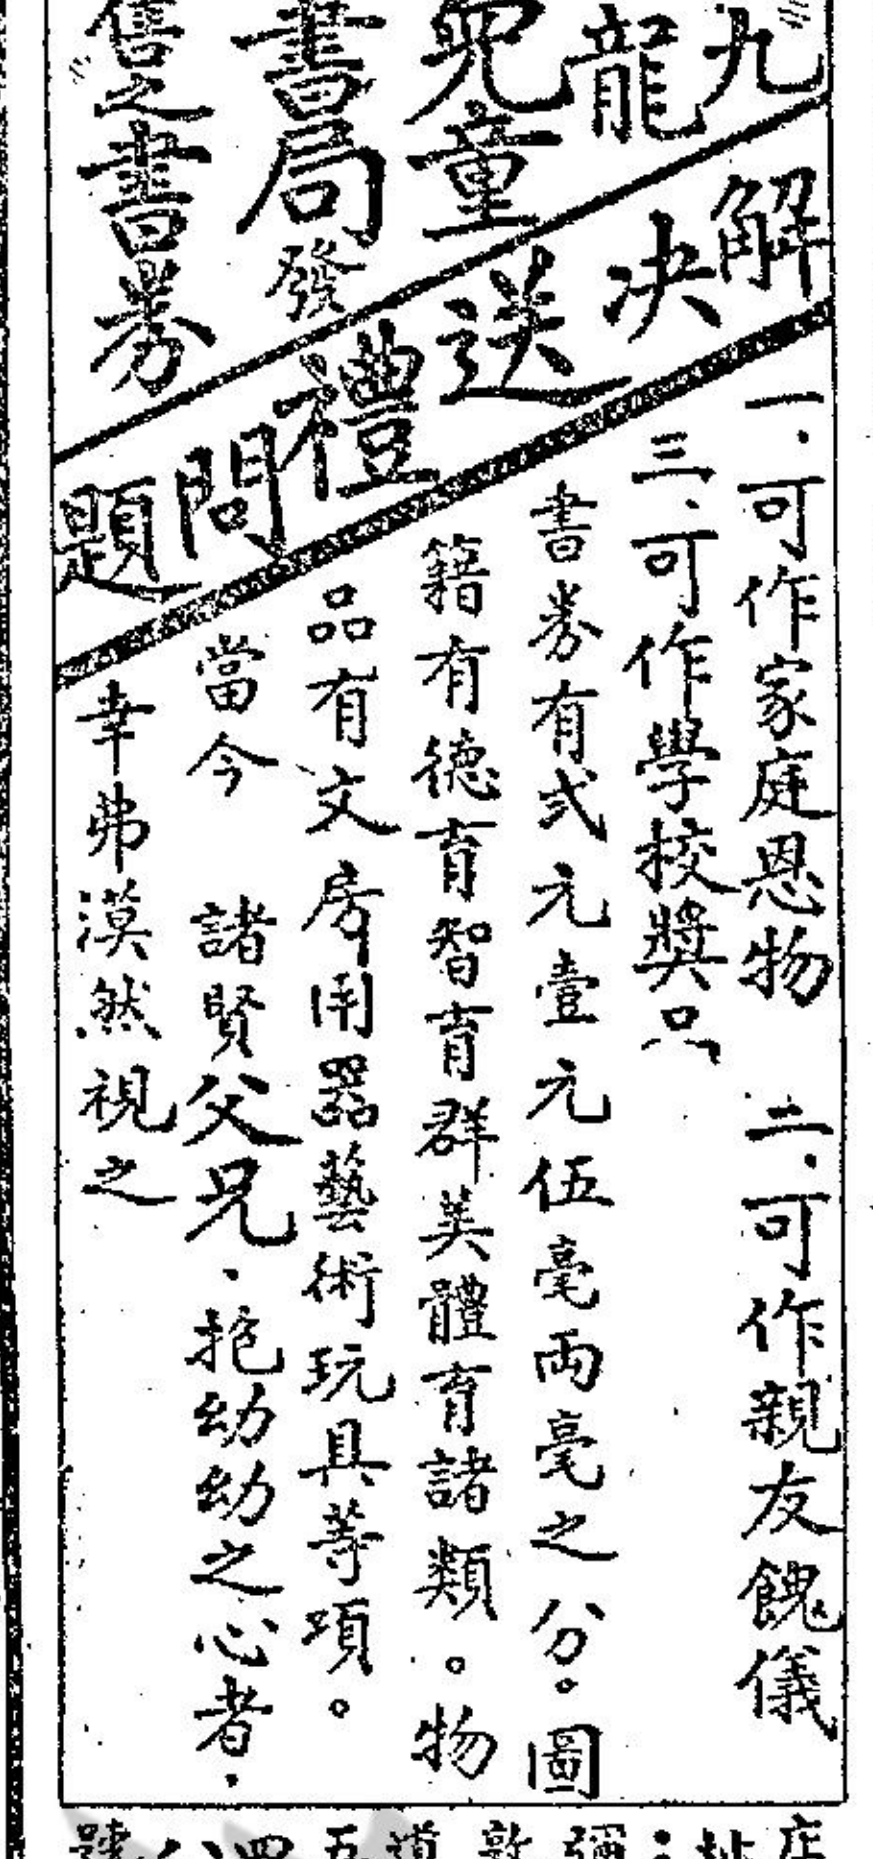 九龍兒童書局發售之書券
解決送禮問題
一.可作家庭恩物 二.可作親友餽儀
三.可作學校獎品
書券有弍元壹元伍毫両毫之分。圖
籍有德育智育群美體育諸類。物
品有文房用器藝術玩具等項。
當今 諸賢父兄.抱幼幼之心者.
幸弗漠然視之
店址:彌敦道五四八號